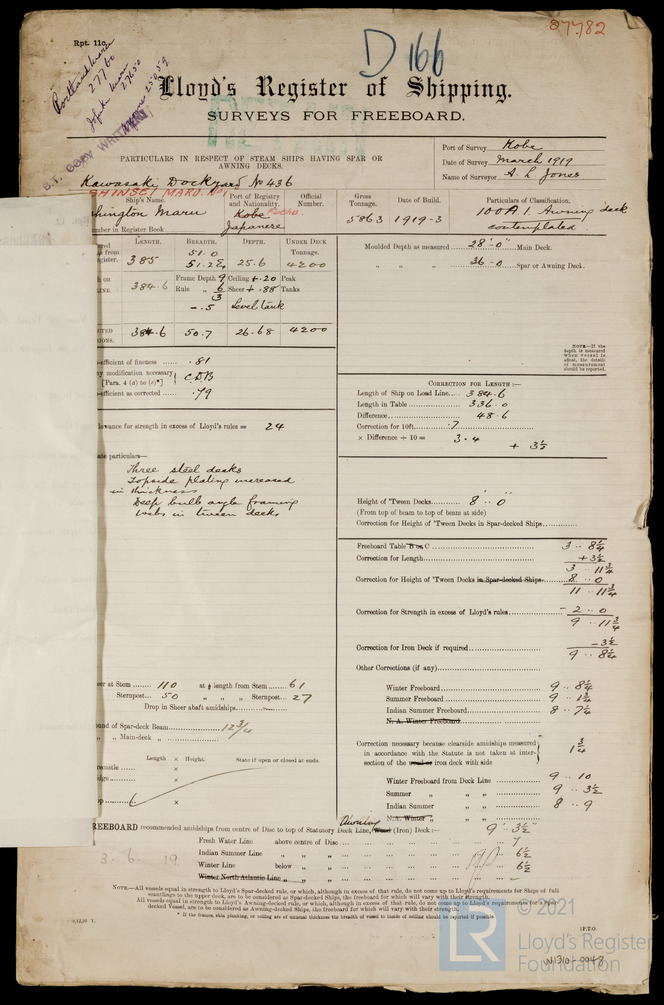 27782
Rpt. 11c.
D 166
Portland Maru
27760
John Maru
27650
Lloyd's Register of Shipping.
SURVEYS FOR FREEBOARD.
B.T. COPY WRITTEN
PARTICULARS IN RESPECT OF STEAM SHIPS HAVING SPAR OR
AWNING DECKS.
Port of Survey Kobe
Date of Survey March 1919
Name of Surveyor A. L. Jones
Kawasaki Dockyard No 436
SHINSEI MARU. No 1
Ship's Name.
Port of Registry and Nationality.
Official Number.
Gross Tonnage.
Date of Build.
Particulars of Classification.
hington Maru
Kobe
Japanese
5863
1919-3
100 A.1. Awning deck
contemplated
umber in Register Book
LENGTH. BREADTH. DEPTH. UNDER DECK Tonnage.
385 51.0 51.2 25.6 4200
384.6 Frame Depth 9 Ceiling +.20 Peak
Rule " 6 Sheer +.88 Tanks
3
-.5 Level tank
384.6 50.7 26.68 4200
Moulded Depth as measured 28'-0" Main Deck.
" " " 36-0 Spar or Awning Deck.
NOTE.—If the depth is measured when vessel is afloat, the details of measurement should be reported.
efficient of fineness .81
y modification necessary
[Para. 4 (a) to (e)*] C.D.B
efficient as corrected .79
CORRECTION FOR LENGTH :—
Length of Ship on Load Line 384.6
Length in Table 336.0
Difference 48.6
Correction for 10ft. .7
× Difference ÷ 10 = 3.4
+ 3½
lowance for strength in excess of Lloyd's rules = 24
ate particulars—
Three steel decks
Topside plating increased
in thickness
Deep bulb angle framing
webs in tween decks
Height of 'Tween Decks 8'..0"
(From top of beam to top of beam at side)
Correction for Height of 'Tween Decks in Spar-decked Ships
Freeboard Table B or C 3..8¼
Correction for Length +3½
3..11¾
Correction for Height of 'Tween Decks in Spar-decked Ships. 8..0
11..11¾
Correction for Strength in excess of Lloyd's rules -2..0
9..11¾
Correction for Iron Deck if required -3½
9..8¼
Other Corrections (if any)
Winter Freeboard 9..8¼
Summer Freeboard 9..1¾
Indian Summer Freeboard 8..7¼
N. A. Winter Freeboard
eer at Stem 110 at ⅛ length from Stem 61
Sternpost 50 " " " Sternpost 27
Drop in Sheer abaft amidships
ound of Spar-deck Beam 12 3/4
" " Main-deck "
Length × Height. State if open or closed at ends.
Correction necessary because clearside amidships measured
in accordance with the Statute is not taken at inter-
section of the iron deck with side
1¾
Winter Freeboard from Deck Line 9..10
Summer " " " 9..3½
Indian Summer " " 8..9
N.A. Winter "
Awning
REEBOARD recommended amidships from centre of Disc to top of Statutory Deck Line, Wood (Iron) Deck :- 9'..3½"
Fresh Water Line above centre of Disc 7
Indian Summer Line " " " 6½
Winter Line below " " 6½
Winter North Atlantic Line " " "
3. 6. 19
NOTE.—All vessels equal in strength to Lloyd's Spar-decked rule, or which, although in excess of that rule, do not come up to Lloyd's requirements for Ships of full
scantlings to the upper deck, are to be considered as Spar-decked Ships, the freeboard for which will vary with their strength.
All vessels equal in strength to Lloyd's Awning-decked rule, or which, although in excess of that rule, do not come up to Lloyd's requirements for a Spar-
decked Vessel, are to be considered as Awning-decked Ships, the freeboard for which will vary with their strength.
* If the frames, skin planking, or ceiling are of unusual thickness the breadth of vessel to inside of ceiling should be reported if possible
[P.T.O.
LR
© 2021
Lloyd's Register
Foundation
W1310-0048